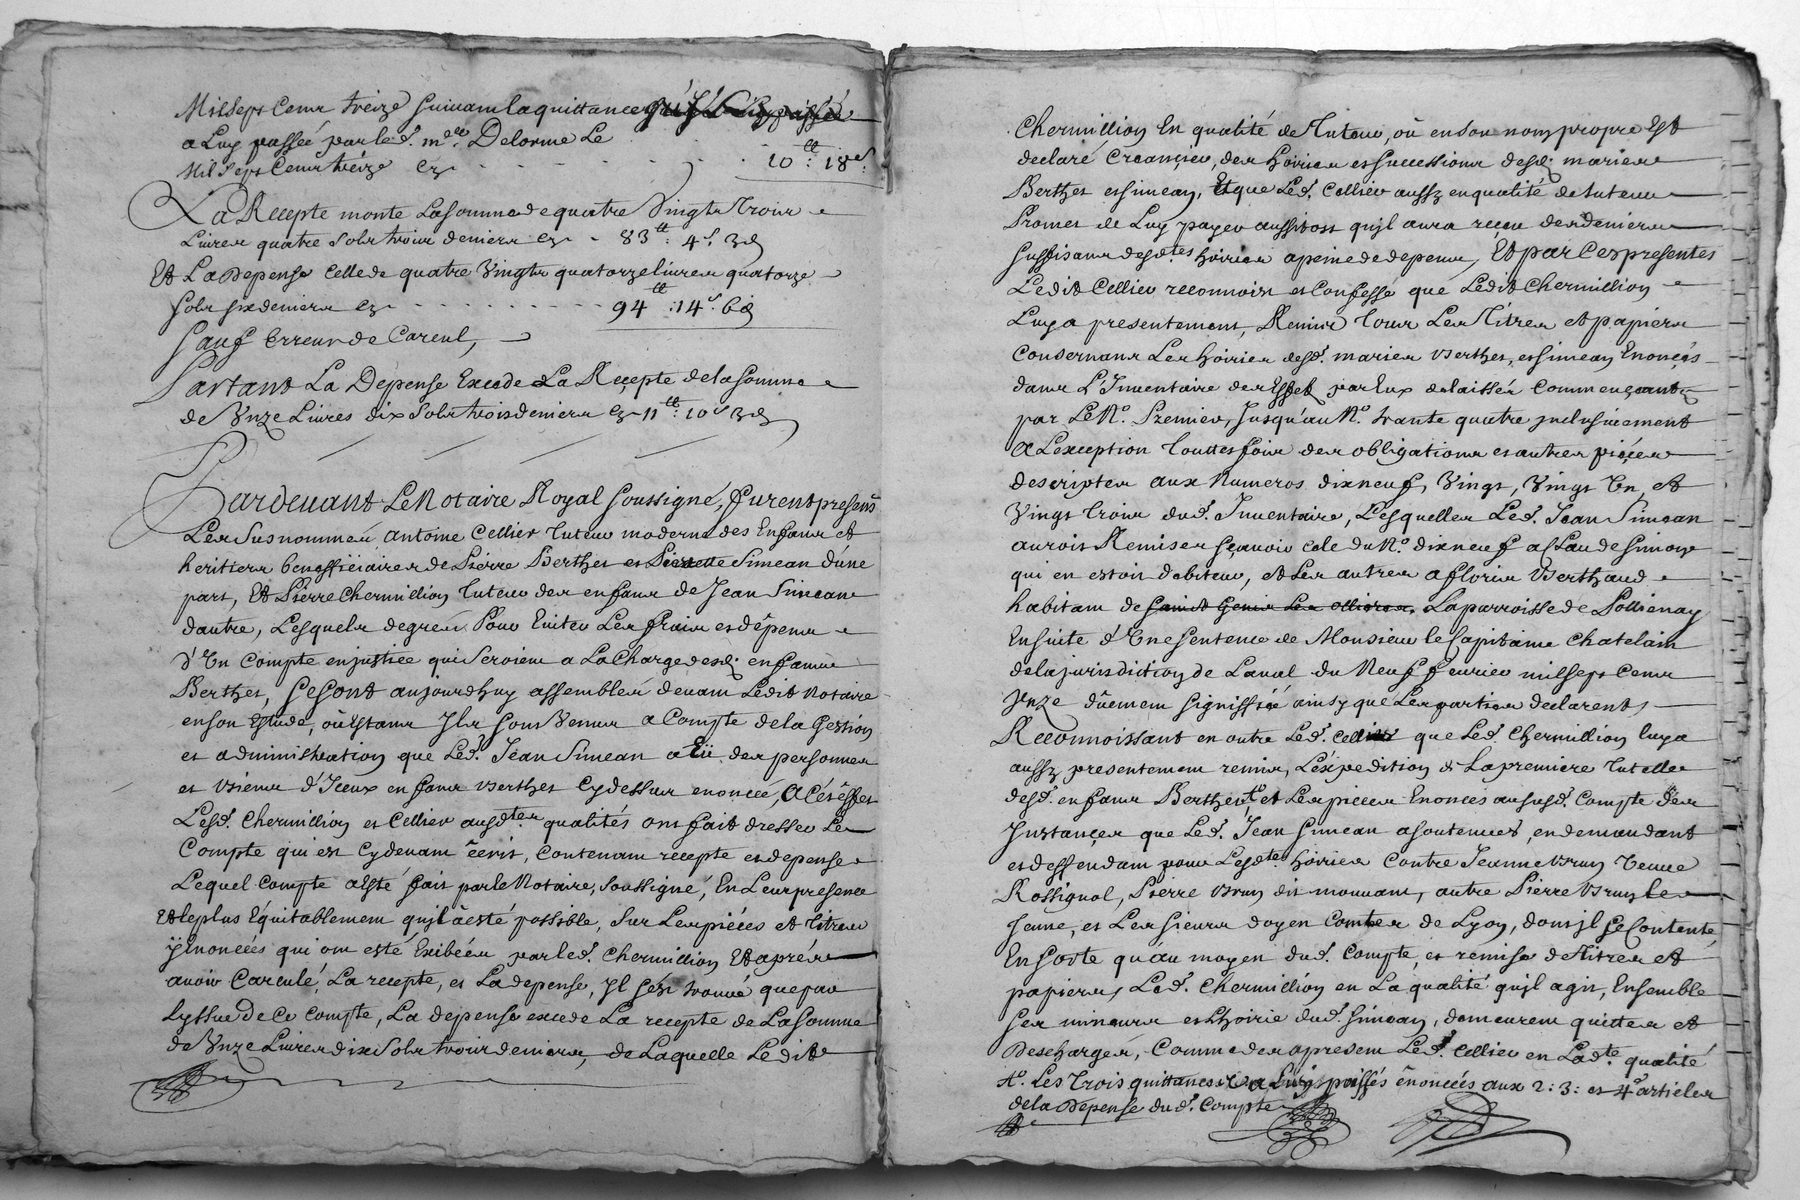 Mil Sept Cent treize Suivant la quittance
a Luy passée par led. me. Delorme Le
Mil Sept Cent treize Cy 10tt: 18s
La Recepte monte La somme de quatre Vingts Trois
Livres quatre sols trois deniers Cy 83tt: 4s. 3d
Et La Depense Celle de quatre Vingts quatorze livres quatorze
sols six deniers Cy 94tt: 14s. 6d
Sauf Erreur de Carcul,
Partant La Dépense Excede La Recepte de la Somme
de Unze Livres dix Sols trois deniers Cy 11tt: 10s 3d
Pardevant Le Notaire Royal Soussigné, furent presens
Les Susnommés antoine Cellier tuteur moderne des Enfans et
heritiers beneffiçiaires de Pierre Berthet et Pierrette Simean d'une
part, Et Pierre Chermillion tuteur des enfans de Jean Simean
dautre, Lesquels de gré Pour Eviter Les frais et dêpens
d'Un Compte en justice qui Seroient a La Charge desd. enfans
Berthet, se sont aujourdhuy assemblés devant Ledit Notaire
en son Estude, où Estans Ils sont Venus a Compte de la Gestion
et administration que Led. Jean Simean a Eü des personnes
et biens d'Iceux enfans Berthet Cydessus enoncée, A Cés êffet
Lesd. Chermillion et Cellier ausdtes qualités ont fait dresser Le
Compte qui est Cydevant êcrit, Contenant recepte et depense
Lequel Compte a Esté fait par le Notaire, Soussigné, En Leur presence
Et le plus Equitablement qu'jl à esté possible, Sur Les pièces et titres
ÿ Enoncées qui ont esté Exibées par led. Chermillion Et aprés
avoir Carculé, La recepte, et La depense, jl s'est trouvé que par
Lyssue de Ce Compte, La depense excede La recepte de La Somme
de Unze Livres dix Sols trois deniers, de Laquelle Ledit
Chermillion En qualité de Tuteur, où en son nom propre Est
declaré Creançier, des hoiries et Successions desd. mariés
Berthet et Simean, Et que Led. Cellier aussy en qualité de tuteur
Promet de Luy payer aussitost qu'jl aura reçeu des deniers
Suffisans desdtes hoiries a peine de depens, Et par Ces presentes
Ledit Cellier reconnoist et Confesse que Ledit Chermillion
Luy a presentement, Remis Tous Les Titres et papiers
Conservans Les hoiries desd. mariés Berthet, et Simean Enoncés
dans L'Inventaire des Effets par Eux delaissés Commençant
par Le No. Premier, Jusqu'au No. trante quatre jnclusivement
A L'exception Touttesfois des obligations et autres pièces
descriptes aux Numeros dixneuf, Vingt, Vingt Un, et
Vingt Trois dud. Inventaire, Lesquelles Led. Jean Simean
auroit Remises sçavoir celle du No. dixneuf a Clau de Simon
qui en estoit debiteur, et Les autres a floris Berthaud
habitant de Saint Genis Les Ollieres, La parroisse de Pollienay
Ensuite d'Une Sentence de Monsieur le Capitaine Chatelain
de la jurisdiction de Laval du Neuf fevrier mil sept Cent
Unze dûement signiffiée ainsy que Les parties declarent,
Reconnoissant en outre Led. Cellier que Led Chermillion luy a
aussy presentement remis, L'éxpedition de La premiere tutelle
desd. enfans Berthet, et Les pièces Enoncées au susd. Compte des
Instançes que Led. Jean Simean a soutenues, en demandant
et deffendant pour Lesdtes hoiries Contre Jeanne Brun Veuve
Rossignol, Pierre Brun dit mouvant, autre Pierre Brun le
Jeune, et Les sieurs doyen Comtes de Lyon, dont jl se Contente
En sorte qu'au moyen dud. Compte, et remise de Titres et
papiers, Led. Chermillion en La qualité qu'jl agit, Ensemble
Ses mineurs et Lhoirie dud. Simean, demeurent quittes et
Deschargés, Comme des apresent Led. Cellier en Ladte. qualité
Les Trois quittances a Luy passés enoncées aux 2: 3: et 4e articles
de la Depense dud. Compte